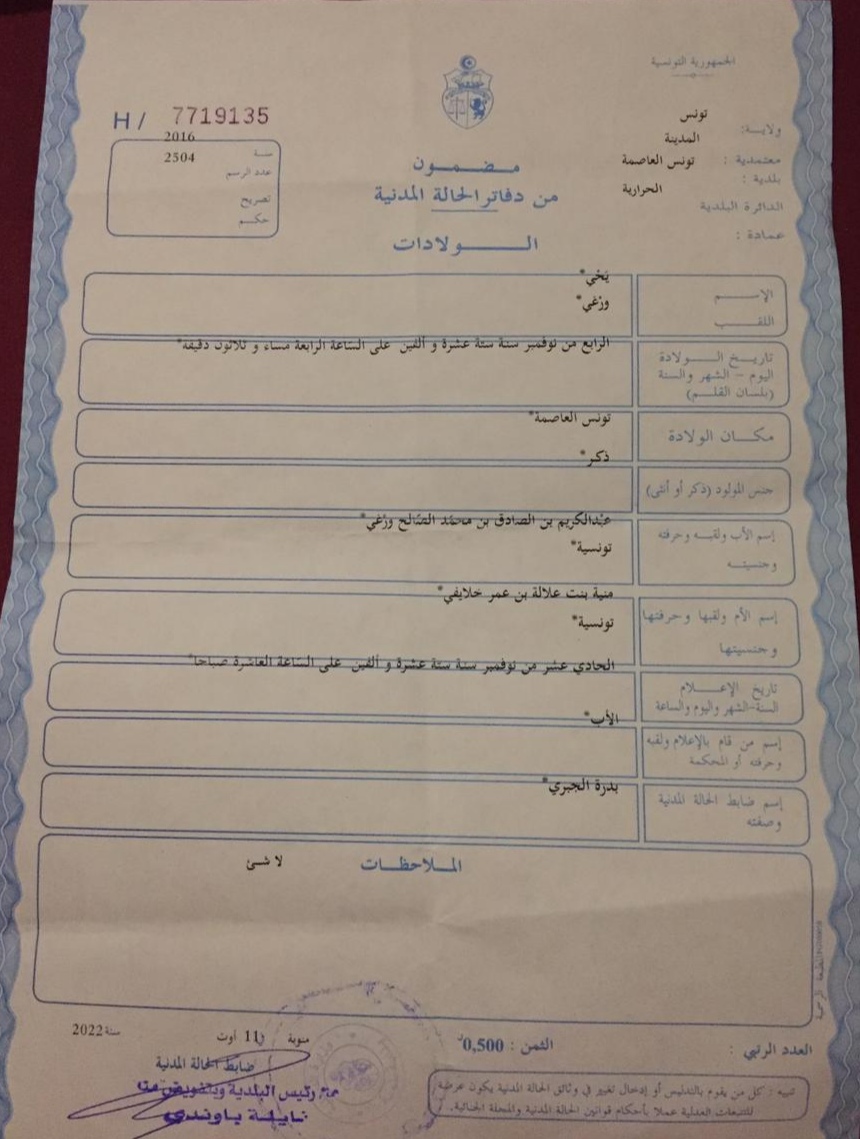 الجمهورية التونسية
H/ 7719135
ولاية: تونس
معتمدية : المدينة
بلدية : تونس العاصمة
الدائرة البلدية الحرارية
عمادة :
سنة 2016
عدد الرسم 2504
تصريح
حكم
مضمون
من دفاتر الحالة المدنية
الولادات
الإسم يَحْي*
اللقب ورْغي*
تاريخ الولادة
اليوم - الشهر والسنة
(بلسان القلم)
الرابع من نوفمبر سنة ستة عشرة و ألفين على السّاعة الرابعة مساء و ثلاثون دقيقة*
مكان الولادة تونس العاصمة*
جنس المولود (ذكر أو أنثى) ذكر*
إسم الأب ولقبه وحرفته عبْدالكريم بن الصادق بن محمّد الصّالح ورْغي*
وجنسيته تونسية*
إسم الأم ولقبها وحرفتها منية بنت علالة بن عمر خلايفي*
وجنسيتها تونسية*
تاريخ الإعلام
السنة-الشهر واليوم والساعة
الحادي عشر من نوفمبر سنة ستة عشرة و ألفين على السّاعة العاشرة صباحا*
إسم من قام بالإعلام ولقبه الأب*
وحرفته أو المحكمة
إسم ضابط الحالة المدنية بدرة الجبري*
وصفته
الملاحظات لا شئ
منوبة 11 أوت سنة 2022
الثمن : 0,500
العدد الرتبي :
ضابط الحالة المدنية
رئيس البلدية وبتفويض منه
تنبيه : كل من يقوم بالتدليس أو إدخال تغيير في وثائق الحالة المدنية يكون عرضة
للتتبعات العدلية عملا بأحكام قوانين الحالة المدنية والمجلة الجنائية.